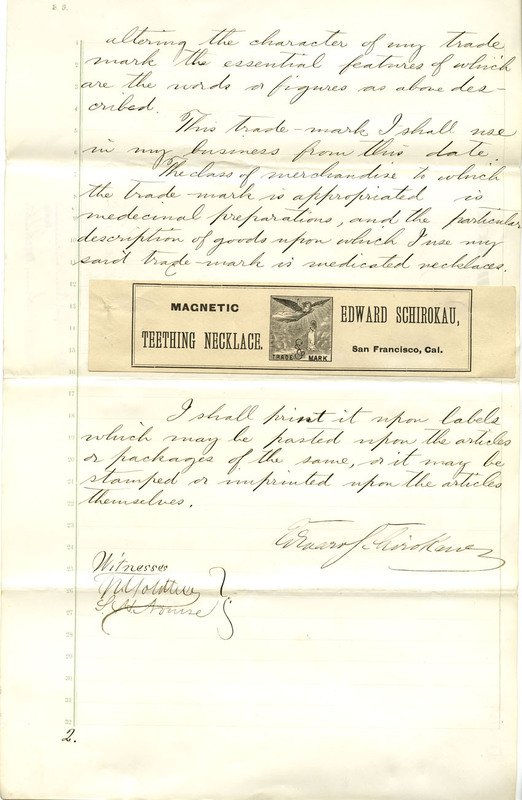 altering the character of my trade
mark the essential features of which
are the words or figures as above des-
cribed.
This trade-mark I shall use
in my business from this date.
The class of merchandise to which
the trade-mark is appropriated is
medecinal preparations, and the particular
description of goods upon which I use my
said trade-mark is medicated necklaces.
MAGNETIC
TEETHING NECKLACE.
TRADE MARK
EDWARD SCHIROKAU,
San Francisco, Cal.
I shall print it upon labels
which may be pasted upon the articles
or packages of the same, or it may be
stamped or imprinted upon the articles
themselves.
Edward Schirokau
Witnesses
2.